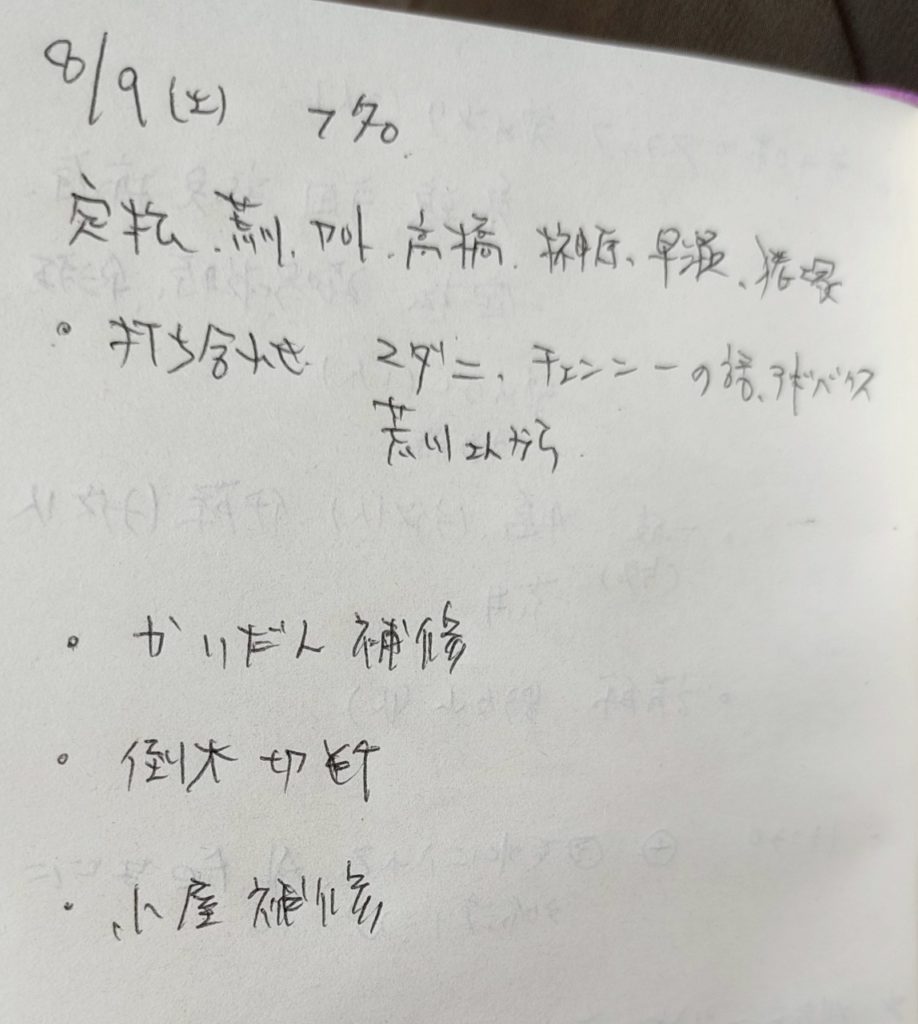 8/9 (土) 7名
定松、荒川、高橋、榊原、早渥、猪塚
• 打ち合わせ マダニ、チェンソーの話、アドバイス
荒川さんから
• かいだん補修
• 倒木切断
• 小屋補修